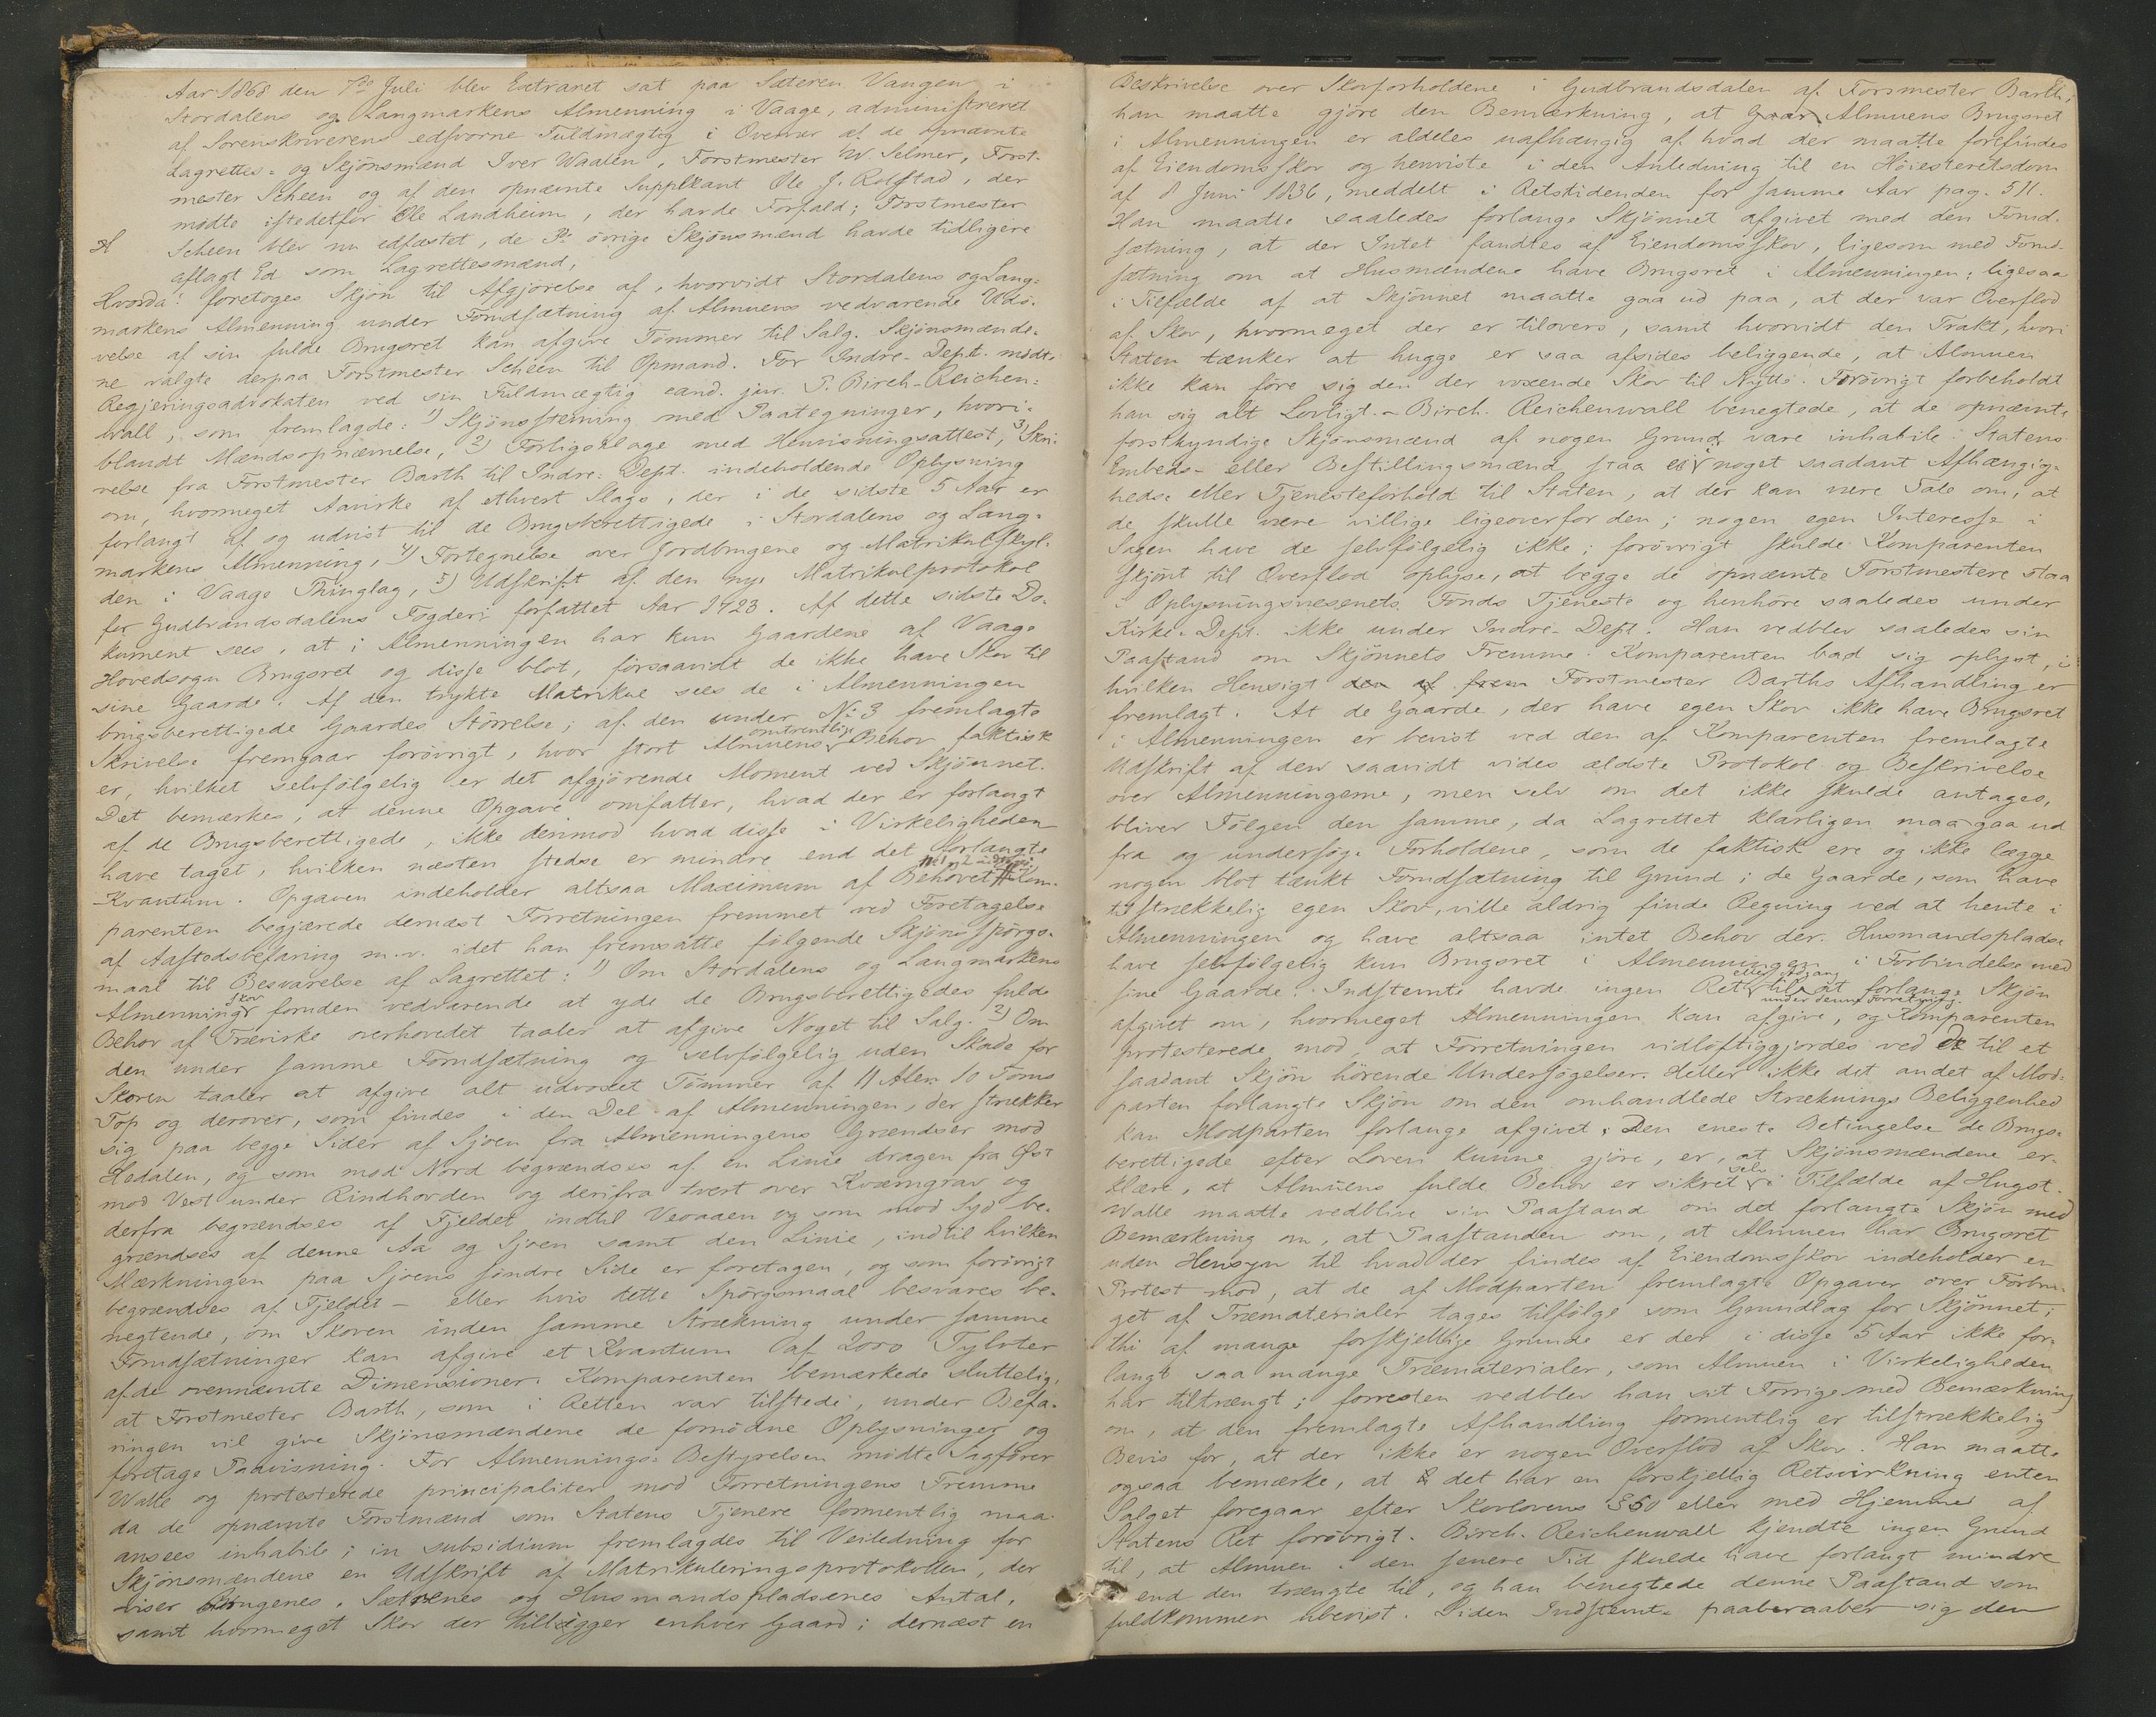 Aar 1868 den 7de Juli blev Extraret sat paa Sæteren Vangen i
Stordalens og Langmarkens Almenning i Vaage, administreret
af Sorenskriverens edsvorne Fuldmægtig i Overvær af de opnævnte
Lagrettes- og Skjönsmænd Iver Waalen, Forstmester W. Selmer, Forst-
mester Scheen og af den opnævnte Supplkant Ole J. Rolfstad, der
mödte istedetfor Ole Landheim, der havde Forfald; Forstmester
Scheen blev nu edfæstet, de övrige Skjönsmænd havde tidligere
aflagt Ed som Lagrettesmænd,
Hvorda! foretoges Skjön til Afgjörelse af, hvorvidt Stordalens og Lang-
markens Almenning under Forudsætning af Almuens vedvarende Udö-
velse af sin fulde Brugsret kan afgive Tömmer til Salg. Skjönsmænde-
ne valgte derpaa Forstmester Scheen til Opmand. For Indre-Dept. mödte
Regjeringsadvokaten ved sin Fuldmægtig cand. jur. P. Birch-Reichen-
wall, som fremlagde: 1) Skjönsstevning med Paategninger, hvori-
blandt Mændsopnævnelse, 2) Forligsklage med Henvisningsattest, 3) Skri-
velse fra Forstmester Barth til Indre-Dept. indeholdende Oplysning
om, hvormeget Aavirke af ethvert Slags, der i de sidste 5 Aar er
forlangt af og udvist til de Brugsberettigede i Stordalens og Lang-
markens Almenning, 4) Fortegnelse over Jordbrugene og Matrikulskyl-
den i Vaage Thinglag, 5) Udskrift af den nye Matrikulprotokol
for Gudbrandsdalens Fogderi forfattet Aar 1723. Af dette sidste Do-
kument sees, at i Almenningen har kun Gaardene af Vaage
Hovedsogn Brugsret og disse blot, forsaavidt de ikke have Skov til
sine Gaarde. Af den trykte Matrikul sees de i Almenningen
brugsberettigede Gaardes Störrelse; af den under No 3 fremlagte
Skrivelse fremgaar forövrigt, hvor stort Almuens omtrentlige Behov faktisk
er, hvilket selvfölgelig er det afgjörende Moment ved Skjönnet.
Det bemærkes, at denne Opgave omfatter, hvad der er forlangt
af de Brugsberettigede, ikke derimod hvad disse i Virkeligheden
have taget, hvilken næsten stedse er mindre end det forlangte
Kvantum. Opgaven indeholder altsaa Maximum af Behovet. Kom-
parenten begjærede dernæst Forretningen fremmet ved Foretagelse
af Aastedsbefaring m.v. idet han fremsatte fölgende Skjöns spörgs-
maal til Besvarelse af Lagrettet: 1) Om Stordalens og Langmarkens
Almenningsskov foruden vedvarende at yde de Brugsberettigedes fulde
Behov af Trævirke overhovedet taaler at afgive Noget til Salg. 2) Om
den under samme Forudsætning og selvfölgelig uden Skade for
Skoven taaler at afgive alt udvoxet Tömmer af 11 Alen 10 Toms
Top og derover, som findes i den Del af Almenningen, der strækker
sig paa begge Sider af Sjoen fra Almenningens Grændser mod
Hedalen, og som mod Nord begrændses af en Linie dragen fra Öst
mod Vest under Rindhovden og derifra tvert over Kværngrav og
derfra begrændses af Fjeldet indtil Veoaaen og som mod Syd be-
grændses af denne Aa og Sjoen samt den Linie, indtil hvilken
Mærkningen paa Sjoens söndre Side er foretagen, og som forövrigt
begrændses af Fjeldet – eller hvis dette Spörgsmaal besvares be-
negtende, om Skoven inden samme Strækning under samme
Forudsætninger kan afgive et Kvantum af 2000 Tylvter
af de ovennævnte Dimensioner. Komparenten bemærkede sluttelig,
at Forstmester Barth, som i Retten var tilstede, under Befa-
ringen vil give Skjönsmændene de fornödne Oplysninger og
foretage Paavisning. For Almennings-Bestyrelsen mödte Sagförer
Walle og protesterede principaliter mod Forretningens Fremme
da de opnævnte Forstmænd som Statens Tjenere formentlig maa
ansees inhabile; in subsidium fremlagdes til Veiledning for
Skjönsmændene en Udskrift af Matrikuleringsprotokollen, der
viser Brugenes, Sætrenes og Husmandspladsenes Antal,
samt hvormeget Skov der tilligger enhver Gaard; dernæst en
Beskrivelse over Skovforholdene i Gudbrandsdalen af Forsmester Barth;
han maatte gjöre den Bemærkning, at Almuens Brugsret
i Almenningen er aldeles uafhængig af hvad der maatte forefindes
af Eiendomsskov og henviste i den Anledning til en Höiesteretsdom
af 8 Juni 1836, meddelt i Retstidenden for samme Aar pag. 511.
Han maatte saaledes forlange Skjönnet afgivet med den Forud-
sætning, at der Intet fandtes af Eiendomsskov, ligesom med Forud-
sætning om at Husmændene have Brugsret i Almenningen; ligesaa
i Tilfælde af at Skjönnet maatte gaa ud paa, at der var Overflod
af Skov, hvormeget der er tilovers, samt hvorvidt den Trakt, hvori
Staten tænker at hugge er saa afsides beliggende, at Almuen
ikke kan före sig den der voxende Skov til Nytte. Forövrigt forbeholdt
han sig alt Lovligt. – Birch-Reichenwall benegtede, at de opnævnte
forstkyndige Skjönsmænd af nogen Grund vare inhabile. Statens
Embeds- eller Bestillingsmænd staa ei i noget saadant Afhængig-
heds- eller Tjenesteforhold til Staten, at der kan være Tale om, at
de skulle være villige ligeoverfor den; nogen egen Interesse i
Sagen have de selvfölgelig ikke; forövrigt skulde Komparenten
skjönt til Overflod oplyse, at begge de opnævnte Forstmestere staa
i Oplysningsvesenets Fonds Tjeneste og henhöre saaledes under
Kirke-Dept. ikke under Indre-Dept. Han vedblev saaledes sin
Paastand om Skjönnets Fremme. Komparenten bad sig oplyst, i
hvilken Hensigt Forstmester Barths Afhandling er
fremlagt. At de Gaarde, der have egen Skov ikke have Brugsret
i Almenningen er bevist ved den af Komparenten fremlagte
Udskrift af den saavidt vides ældste Protokol og Beskrivelse
over Almenningerne, men selv om det ikke skulde antages,
bliver Fölgen den samme, da Lagrettet klarligen maa gaa ud
fra og undersöge Forholdene, som de faktisk ere og ikke lægge
nogen blot tænkt Forudsætning til Grund; de Gaarde, som have
tilstrækkelig egen Skov, ville aldrig finde Regning ved at hente i
Almenningen og have altsaa intet Behov der. Husmandspladse
have selvfölgelig kun Brugsret i Almenningen i Forbindelse med
sine Gaarde. Indstevnte havde ingen Ret eller Adgang til at forlange Skjön
afgivet om, hvormeget Almenningen kan afgive, og Komparenten
under denne Forretning
protesterede mod, at Forretningen vidlöftiggjordes ved de til et
saadant Skjön hörende Undersögelser. Heller ikke det andet af Mod-
parten forlangte Skjön om den omhandlede Stræknings Beliggenhed
kan Modparten forlange afgivet. Den eneste Betingelse de Brugs-
berettigede efter Loven kunne gjöre, er, at Skjönsmændene er-
klære, at Almuens fulde Behov er sikret selv i Tilfælde af Hugst.
Walle maatte vedblive sin Paastand om det forlangte Skjön med
Bemærkning om, at Paastanden om, at Almuen har Brugsret
uden Hensyn til hvad der findes af Eiendomsskov indeholder en
Protest mod, at de af Modparten fremlagte Opgaver over Forbru-
get af Træmaterialer tages tilfölge som Grundlag for Skjönnet;
thi af mange forskjellige Grunde er der i disse 5 Aar ikke for-
langt saa mange Træmaterialer, som Almuen i Virkeligheden
har tiltrængt; forresten vedblev han sit Forrige med Bemærkning
om, at den fremlagte Afhandling formentlig er tilstrækkelig
Bevis for, at der ikke er nogen Overflod af Skov. Han maatte
ogsaa bemærke, at det har en forskjellig Retsvirkning enten
Salget foregaar efter Skovlovens § 50 eller med Hjemmel af
Statens Ret forövrigt. Birch-Reichenwall kjendte ingen Grund
til, at Almuen i den senere Tid skulde have forlangt mindre
end den trængte til, og han benegtede denne Paastand som
fuldkommen ubevist. Siden Indstevnte paaberaaber sig den